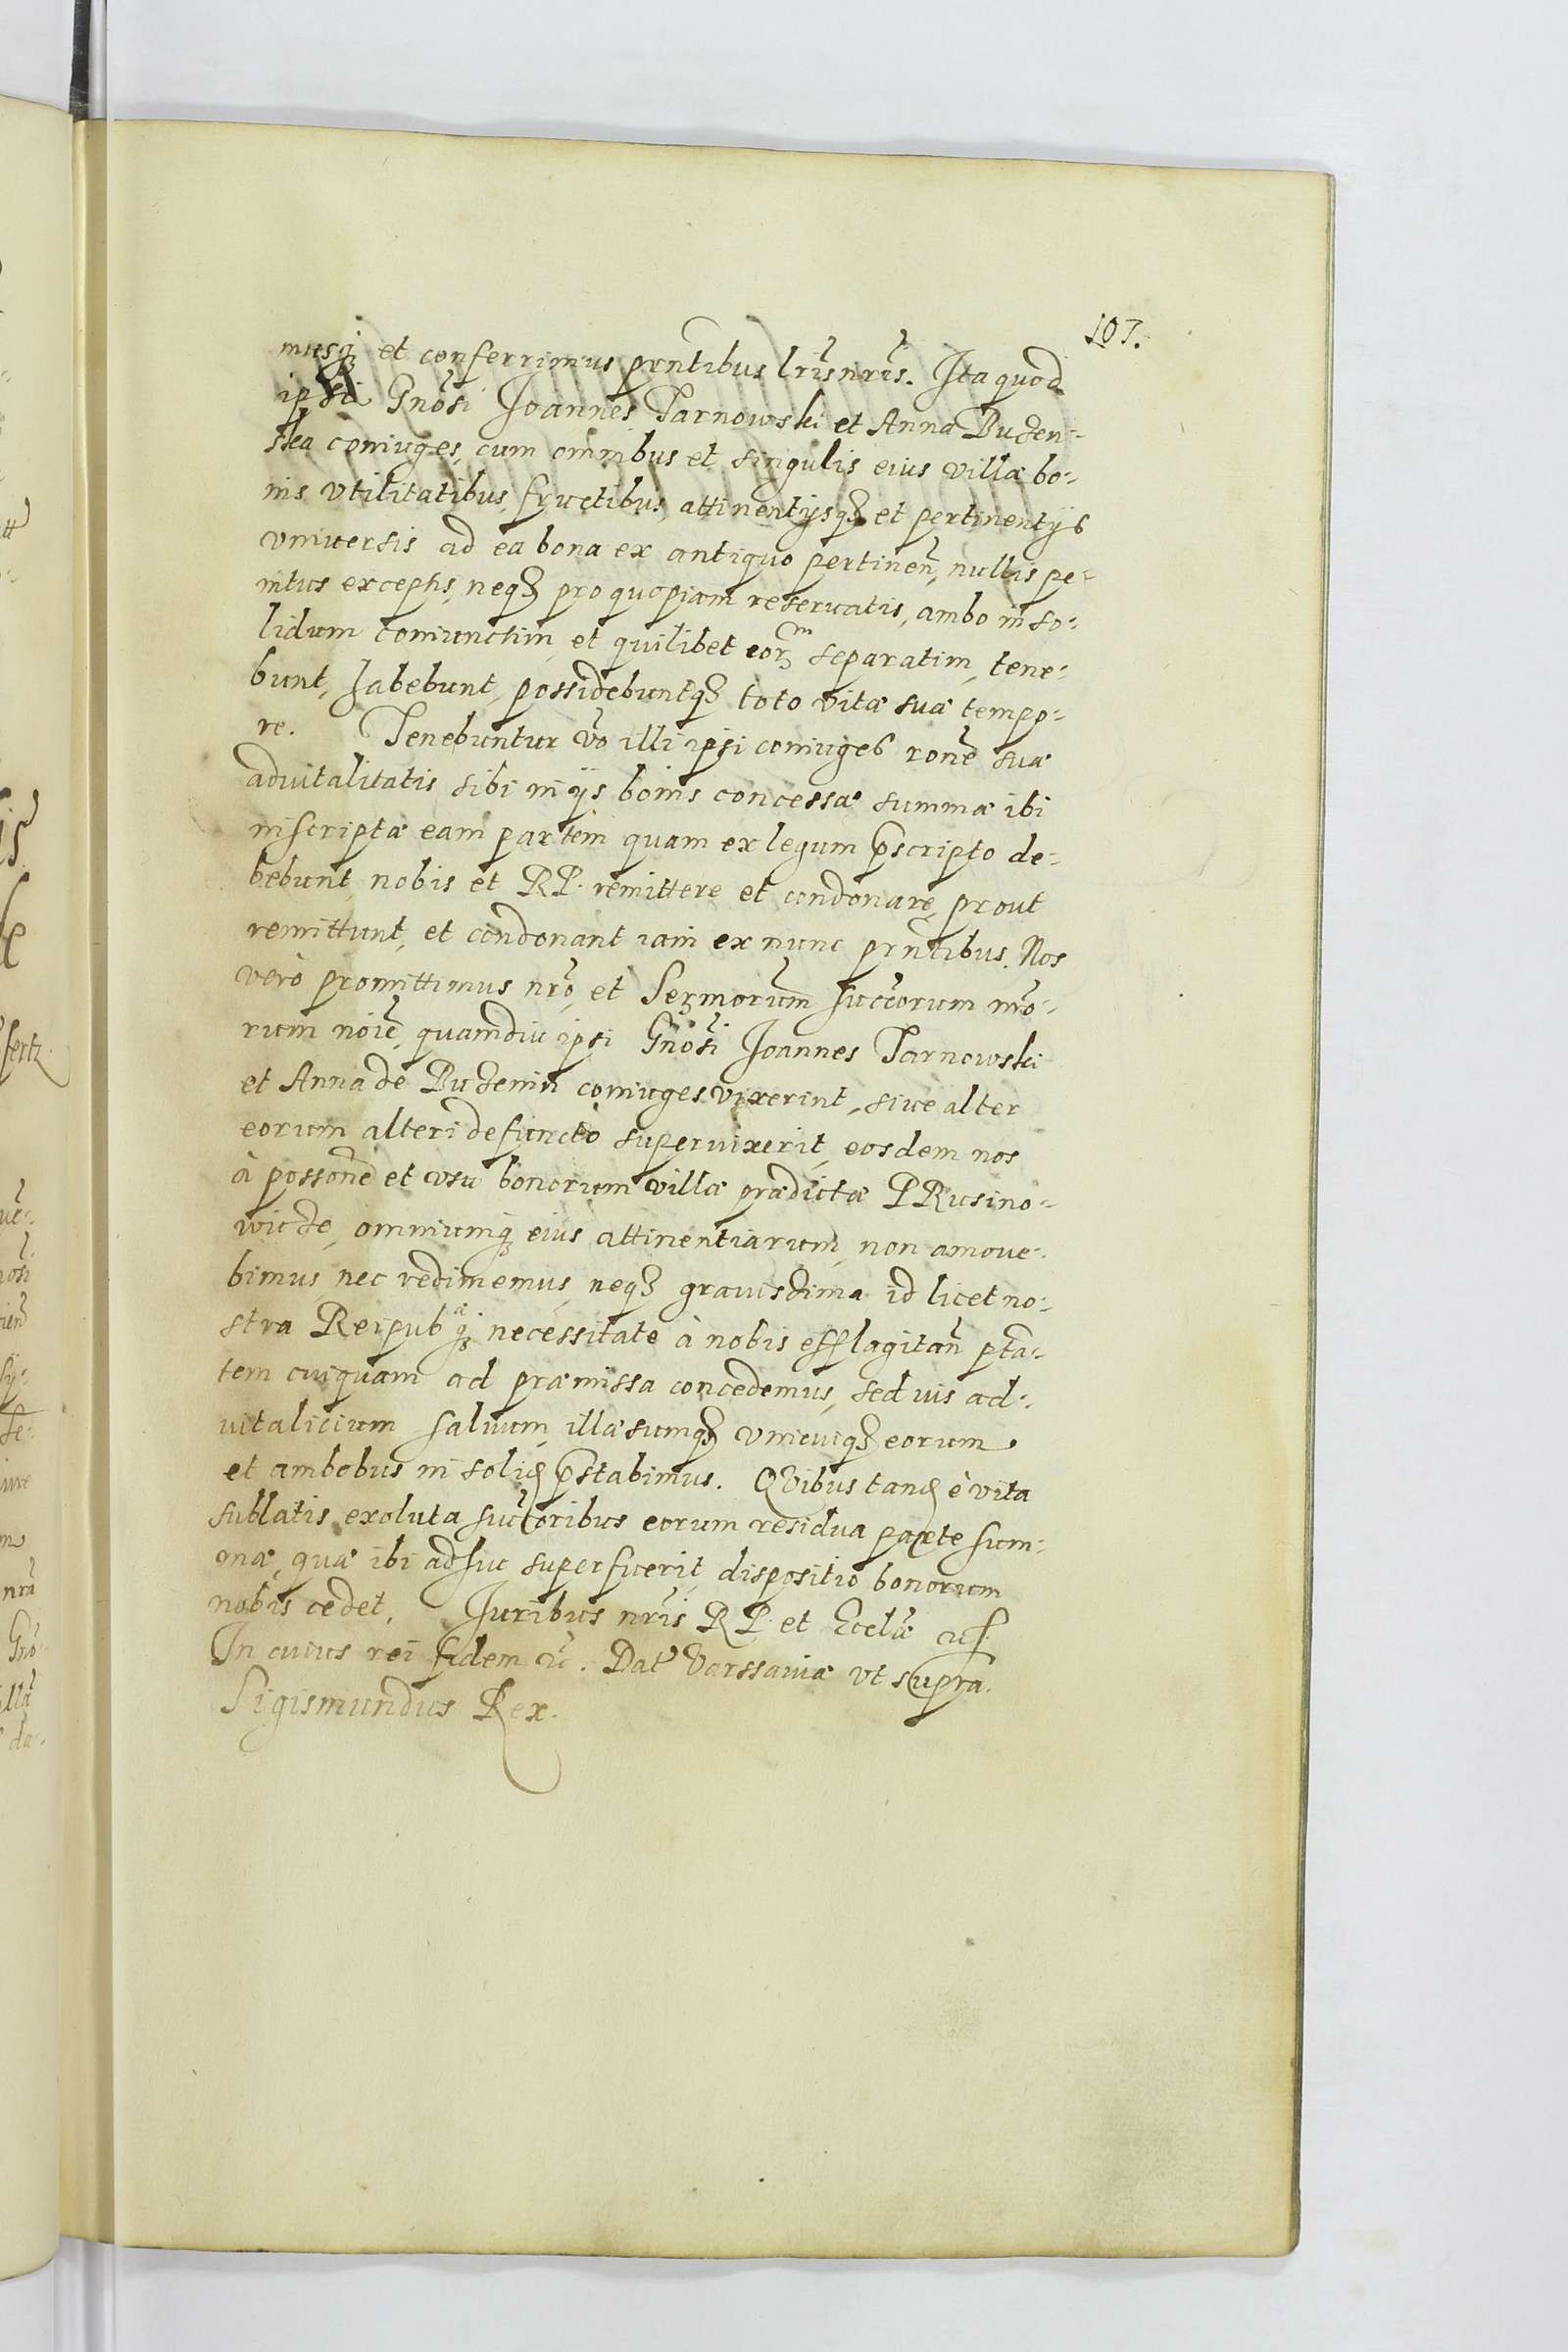 107.
musq3 et conferrimus prntibus lris nris. Ita quod
ipsi Gnosi Joannes Tarnowski et Anna Budzen-
ska coniuges, cum omnibus et singulis eius villæ bo-
nis vtilitatibus, fructibus, attinentijsq3 et pertinentijs
vniuersis ad ea bona ex antiquo pertinen, nullis pe-
nitus exceptis, neq3 pro quopiam reseruatis, ambo in so-
lidum coniunctim, et quilibet eorm separatim, tene-
bunt, habebunt, possidebuntq3 toto vitæ suæ tempo-
re. Tenebuntur vo illi ipsi coniuges rone suæ
aduitalitatis sibi in ijs bonis concessæ summæ ibi
inscriptæ eam partem quam ex legum pscripto de-
bebunt, nobis et RP. remittere et condonare, prout
remittunt, et condonant iam ex nunc prntibus. Nos
verò promittimus nro, et Serzmorum succorum nro-
rum noie, quamdiu ipsi Gnosi Joannes Tarnowski
et Anna de Budzenin coniuges vixerint, siue alter
eorum alteri defuncto superuixerit, eosdem nos
à possone et vsu bonorum villæ prædictæ PRusino-
wicze, omniumq3 eius attinentiarum, non amoue-
bimus, nec redimemus, neq3 grauissima id licet no-
stra Reipub q3 necessitate à nobis efflagitan pta-
tem cuiquam ad præmissa concedemus, sed ius ad-
uitalicium saluum, illæsumq3 vnicuiq3 eorum
et ambobus in solid pstabimus. QVibus tand è vita
sublatis exoluta succoribus eorum residua parte sum-
mæ, quæ ibi adhuc superfuerit, dispositio bonorum
nobis cedet, Juribus nris RP. et Ecclæ
In cuius rei fidem &. Dat Varssauiæ vt supra.
Sigismundus Rex.